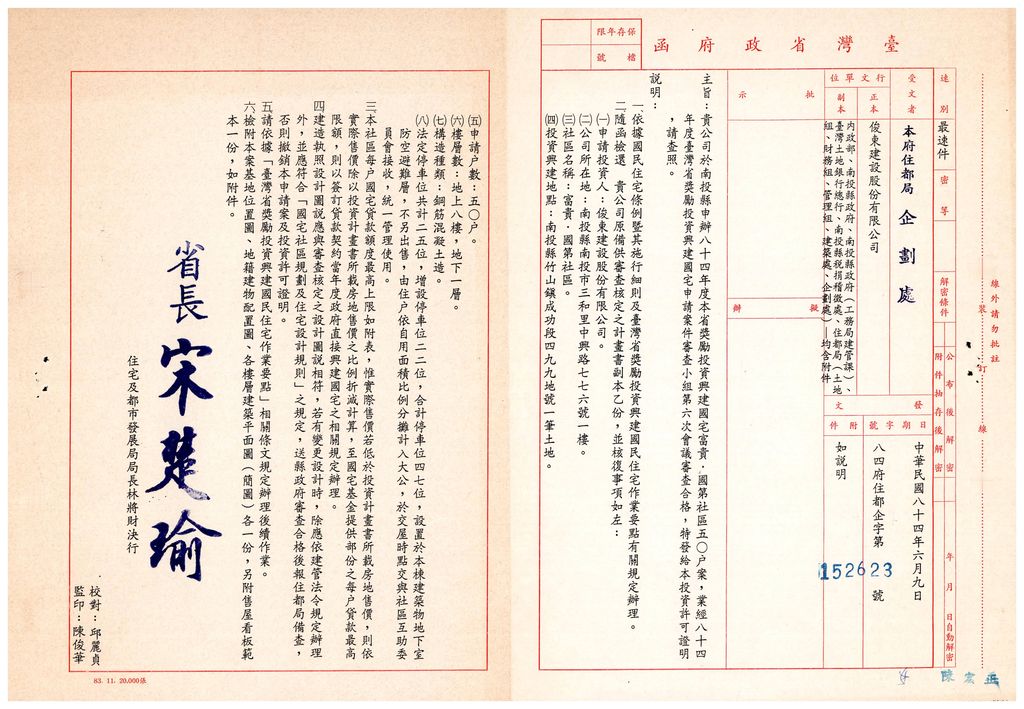 臺灣省政府函
保存年限
檔號
速別
最速件
密等
解密條件
公布後解密
附件抽存後解密
年月日自動解密
受文者
本府住都局企劃處
行文單位
正本
俊東建設股份有限公司
副本
內政部、南投縣政府、南投縣政府(工務局建管課)、
臺灣土地銀行總行、南投縣稅捐稽徵處、住都局(土地
組、財務組、管理組、建築處、企劃處)—均含附件
發文
日期
中華民國八十四年六月九日
字號
八四府住都企字第152623號
附件
如說明
批示
擬辦
主旨:貴公司於南投縣申辦八十四年度本省獎勵投資興建國宅富貴.國第社區五〇户案,業經八十四
年度臺灣省獎勵投資興建國宅申請案件審查小組第六次會議審查合格,特發給本投資許可證明
,請查照。
說明:
一、依據國民住宅條例暨其施行細則及臺灣省獎勵投資興建國民住宅作業要點有關規定辦理。
二、隨函檢還 貴公司原備供審查核定之計畫書副本乙份,並核復事項如左:
㈠申請投資人:俊東建設股份有限公司。
㈡公司所在地:南投縣南投市三和里中興路七七六號一樓。
㈢社區名稱:富貴.國第社區。
㈣投資興建地點:南投縣竹山鎮成功段四九九地號一筆土地。
線外請勿批註
裝
訂
線
陳宏益
㈤申請户數:五〇户。
㈥樓層數:地上八樓,地下一層。
㈦構造種類:鋼筋混凝土造。
㈧法定停車位共計二五位,增設停車位二二位,合計停車位四七位,設置於本棟建築物地下室
防空避難層,不另出售,由住户依自用面積比例分攤計入大公,於交屋時點交與社區互助委
員會接收,統一管理使用。
三、本社區每户國宅貸款額度最高上限如附表,惟實際售價若低於投資計畫書所載房地售價,則依
實際售價除以投資計畫書所載房地售價之比例折減計算,至國宅基金提供部份之每户貸款最高
限額,則以簽訂貸款契約當年度政府直接興建國宅之相關規定辦理。
四、建造執照設計圖說應與審查核定之設計圖說相符,若有變更設計時,除應依建管法令規定辦理
外,並應符合「國宅社區規劃及住宅設計規則」之規定,送縣政府審查合格後報住都局備查,
否則撤銷本申請案及投資許可證明。
五、請依據「臺灣省獎勵投資興建國民住宅作業要點」相關條文規定辦理後續作業。
六、檢附本案基地位置圖、地籍建物配置圖、各樓層建築平面圖(簡圖)各一份,另附售屋看板範
本一份,如附件。
省長宋楚瑜
住宅及都市發展局局長林將財決行
校對:邱麗貞
監印:陳俊華
83. 11. 20,000張